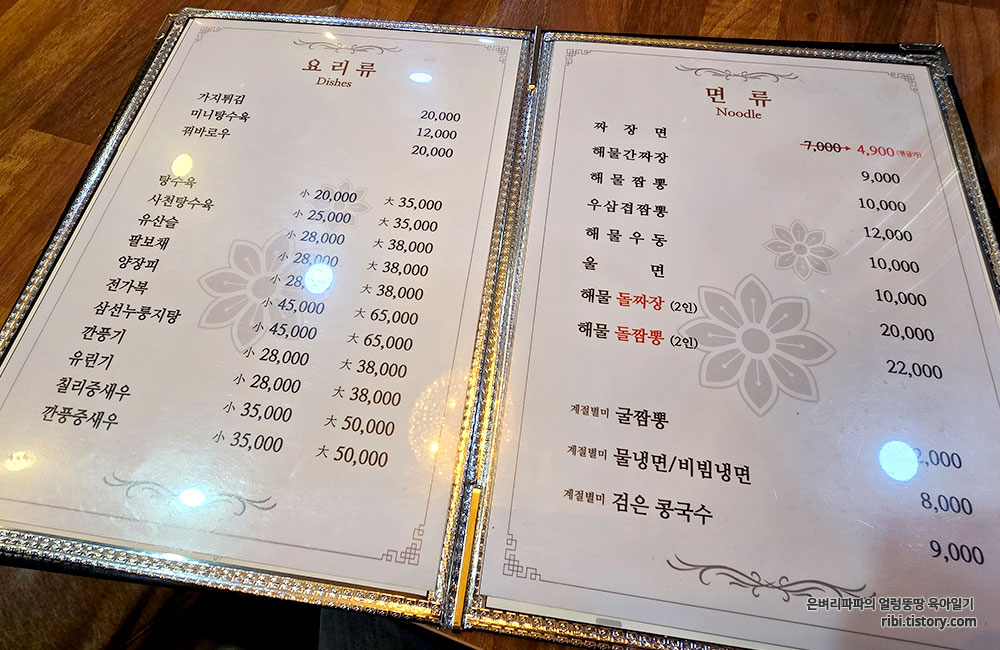 요리류
Dishes
가지튀김 20,000
미니탕수육 12,000
꿔바로우 20,000
탕수육 小 20,000 大 35,000
사천탕수육 小 25,000 大 35,000
유산슬 小 28,000 大 38,000
팔보채 小 28,000 大 38,000
양장피 小 大 38,000
전가복 小 45,000 大 65,000
삼선누룽지탕 小 45,000 大 65,000
깐풍기 小 28,000 大 38,000
유린기 小 28,000 大 38,000
칠리중새우 小 35,000 大 50,000
깐풍중새우 小 35,000 大 50,000
면 류
Noodle
짜 장 면 7,000 4,900 (현금가)
해물간짜장 9,000
해 물 짬 뽕 10,000
우삼겹짬뽕 12,000
해 물 우 동 10,000
울 면 10,000
해물 돌짜장 (2인) 20,000
해물 돌짬뽕 (2인) 22,000
계절별미 굴짬뽕
계절별미 물냉면/비빔냉면 8,000
계절별미 검은 콩국수 9,000
은벼리파파의 얼렁뚱땅 육아일기
ribi.tistory.com